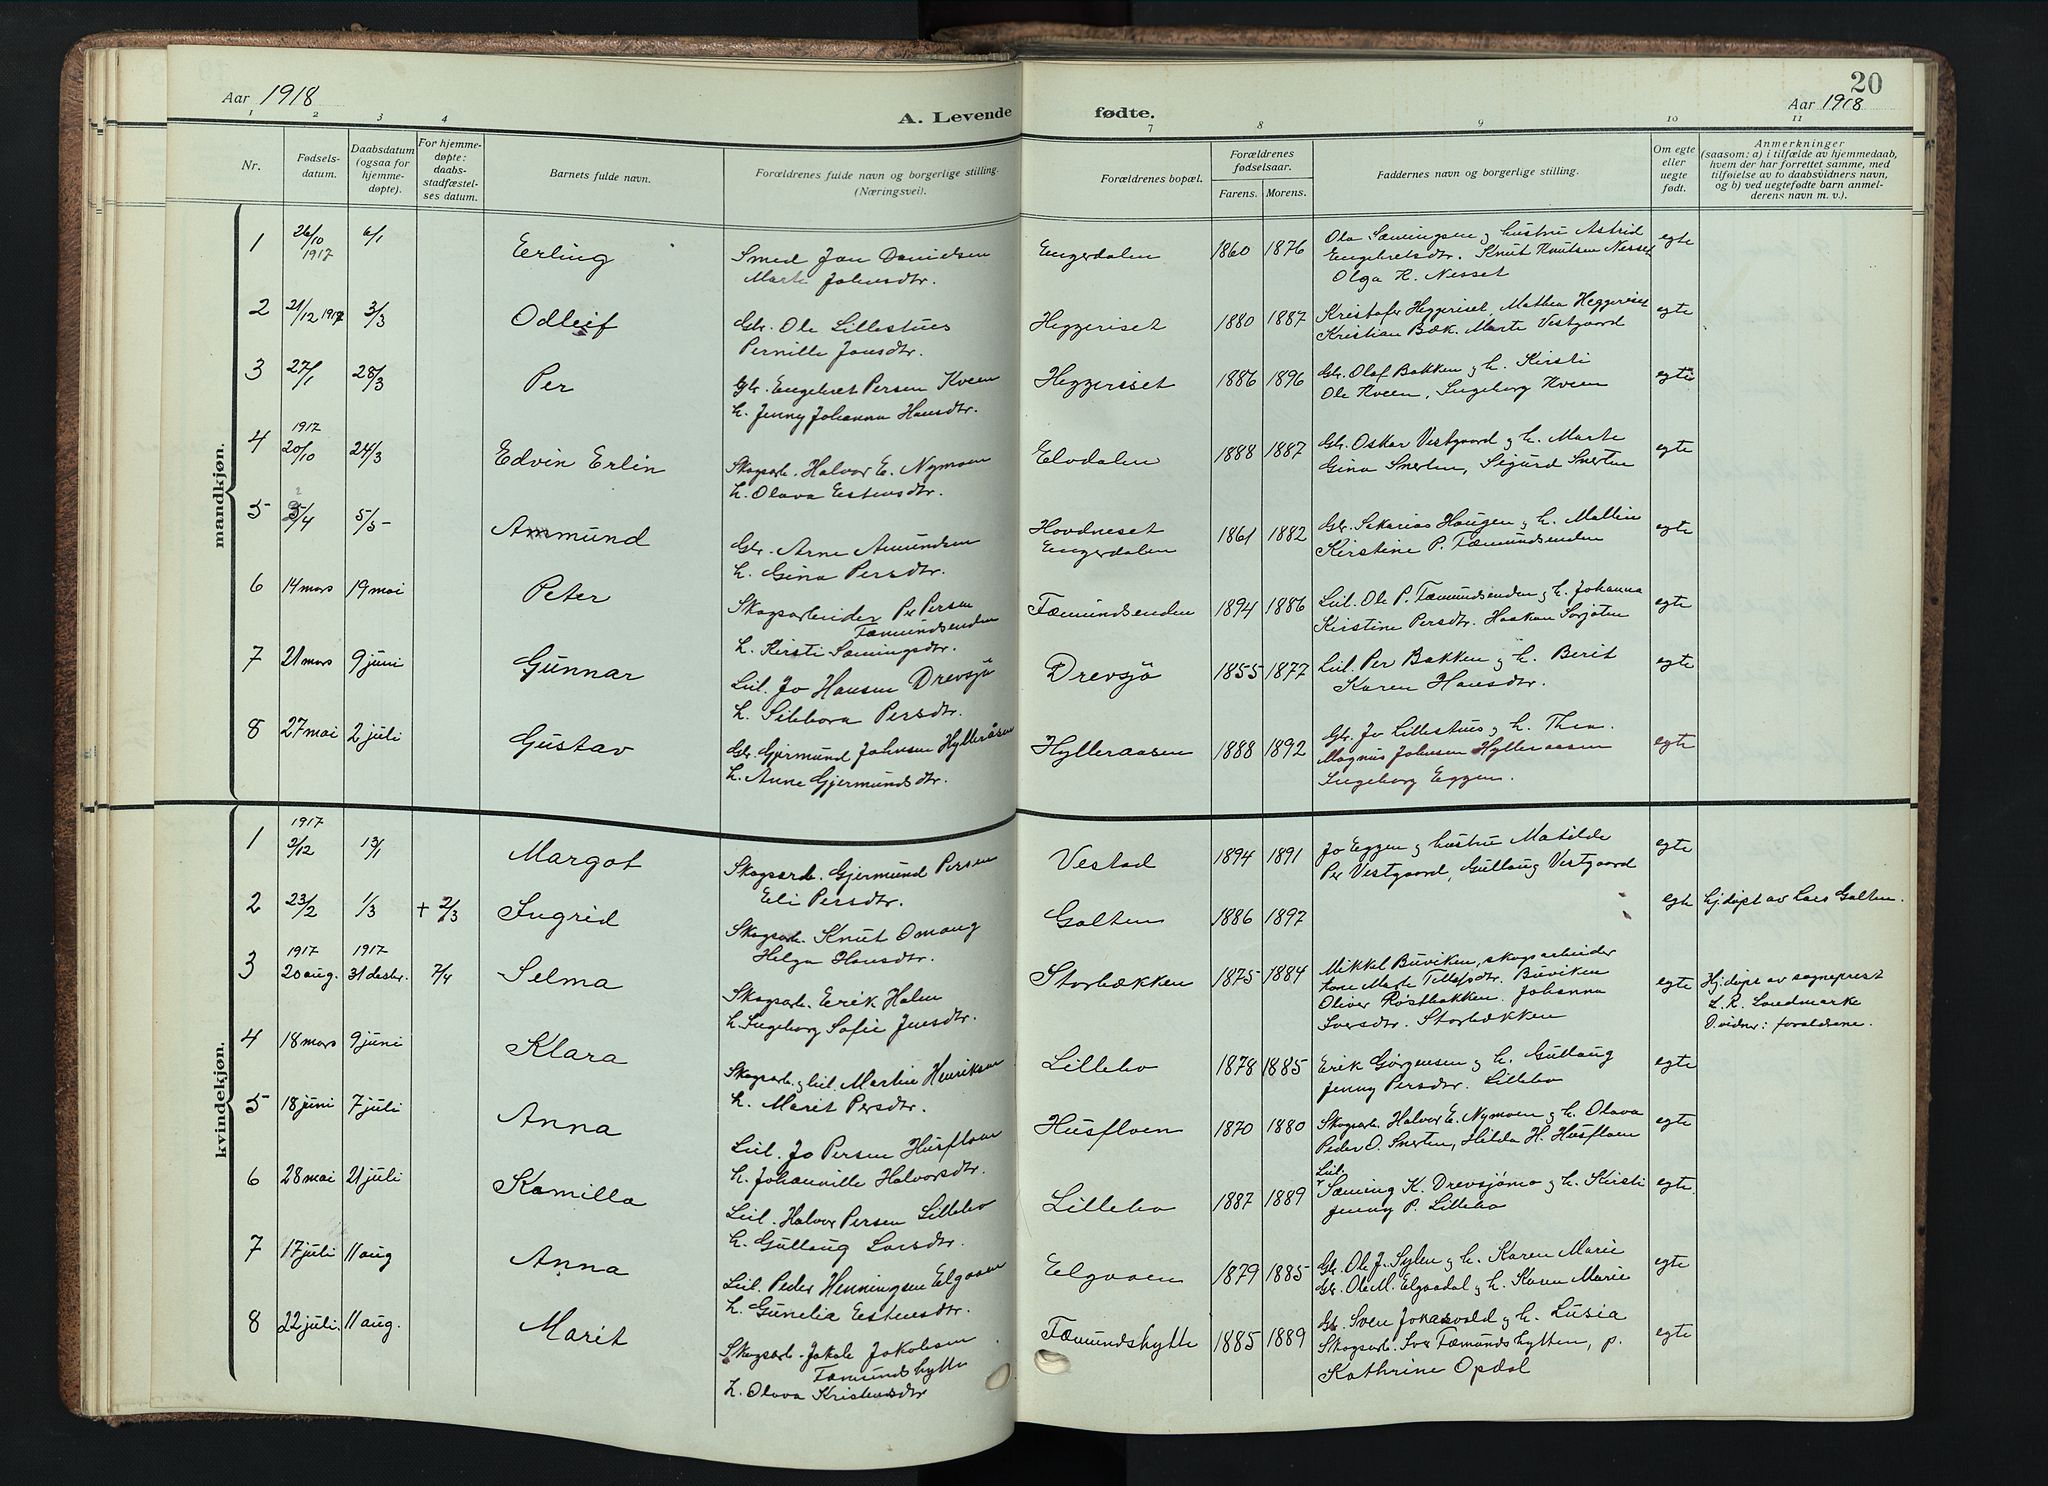 Aar 1918
A. Levende
1 2 3 4
Nr.
Fødsels-
datum.
Daabsdatum
(ogsaa for
hjemme-
døpte).
For hjemme-
døpte:
daabs-
stadfæstel-
ses datum.
Barnets fulde navn.
Forældrenes fulde navn og borgerlige stilling.
(Næringsvei).
mandkjøn.
1 26/10 1917 6/1 Erling
Smed Jon Danielsen
Marte Johnsdtr.
2 21/12 1917 3/3 Odleif
Gbr. Ole Lillestues
Pernille Jonsdtr.
3 27/1 28/3 Per
Gbr. Engebret Persen Kveen
h. Jenny Johanna Hansdtr.
4 1917 20/10 24/3 Edvin Erlin
Skogsarb. Halvor E. Nymoen
h. Olava Estensdtr.
5 5/5 Amund
Gbr. Arne Amundsen
h. Gina Persdtr.
6 14 mars 19 mai Peter
Skogsarbeider Per Persen
Fæmundsenden
h. Kirsti Sæmingsdtr.
7 21 mars 9 juni Gunnar
Leil. Jo Hansen Drevsjö
h. Sibbora Persdtr.
8 27 mai 2 juli Gustav
Gbr. Gjermund Johnsen Hylleråsen
h. Anne Gjermundsdtr.
kvindekjøn.
1 1917 2/12 13/1 Margot
Skogsarb. Gjermund Persen
Eli Persdtr.
2 23/2 1/3 + 2/3 Ingrid
Skogsarb. Knut Omang
Helga Hansdtr.
3 1917 20 aug. 1917 31 desbr. 7/4 Selma
Skogsarb. Erik Holm
h. Ingeborg Sofie Jensdtr.
4 18 mars 9 juni Klara
Skogsarb. og leil. Martin Henriksen
h. Marit Persdtr.
5 18 juni 7 juli Anna
Leil. Jo Persen Husfloen
h. Johanville Halvorsdtr.
6 28 mai 21 juli Kamilla
Leil. Halvor Persen Lillebo
h. Gullaug Larsdtr.
7 17 juli 11 aug Anna
Leil. Peder Henningsen Elgaaen
h. Gunelia Estensdtr.
8 22 juli. 11 aug. Marit
Skogsarb. Jakob Jakobsen
Fæmundshytte
h. Olava Kristensdtr
20
Aar 1918
fødte.
7 8 9 10 11
Forældrenes bopæl.
Forældrenes
fødselsaar.
Farens. Morens.
Faddernes navn og borgerlige stilling.
Om egte
eller
uegte
født.
Anmerkninger
(saasom: a) i tilfælde av hjemmedaab,
hvem der har forrettet samme, med
tilføielse av to daabsvidners navn,
og b) ved uegtefødte barn anmel-
derens navn m. v.).
Engerdalen 1860 1876
Ola Sæmingsen og hustru Astrid egte
Engebretsdtr. Knut Knutsen Nesset
Olga K. Nesset
Heggeriset 1880 1887
Kristofer Heggeriset, Mathea Heggeriset egte
Kristian Bæk. Marte Vestgaard
Heggeriset 1886 1896
Gbr. Olaf Bakken og h. Kirsti egte
Ole Kveen, Ingeborg Kveen
Elvdalen 1888 1887
Gbr. Oskar Vestgaard og h. Marte egte
Gina Snerten, Sigurd Snerten
Hovdneset
Engerdalen 1861 1882
Gbr. Sakarias Haugen og h. Mallin egte
Kirstine P. Fæmundsenden
Fæmundsenden 1894 1886
Leil. Ole P. Fæmundsenden og h. Johanna egte
Kirstine Persdtr. Haakon Sorjoten
Drevsjö 1855 1877
Leil. Per Bakken og h. Berit egte
Karen Hansdtr.
Hylleraasen 1888 1892
Gbr. Jo Lillestues og h. Thea. egte
Magnus Johnsen Hylleraasen
Ingeborg Eggen.
Vestad 1894 1891
Jo Eggen og hustru Matilde egte
Per Vestgaard, Gullaug Vestgaard
Galten 1886 1897 egte Hj.døpt av Lars Galten.
Storbækken 1875 1884
Mikkel Buviken, skogsarbeider
kone Marte Tollefsdtr. Buviken egte Hj.døpt av sogneprest
Oliver Røstbakken. Johanna L. R. Landmarke
Iversdtr. Storbækken D.vidner: forældrene.
Lillebo 1878 1885
Erik Gørgensen og h. Gullaug egte
Jenny Persdtr. Lillebo
Husfloen 1870 1880
Skogsarb. Halvor E. Nymoen og h. Olava egte
Peder O. Snerten, Hilda H. Husfloen
Lillebo 1887 1889
Leil.
Sæming K. Drevsjømo og h. Kirsti egte.
Jenny P. Lillebo
Elgaaen 1879 1885
Gbr. Ole J. Sylen og h. Karen Marie egte
Gbr. Ole M. Elgaadal og h. Karen Marie
Fæmundshytte 1885 1889
Gb. Sven Jokasvold og h. Lusia egte
Skogsarb. Iver Fæmundshytten, p.
Kathrine Opdal